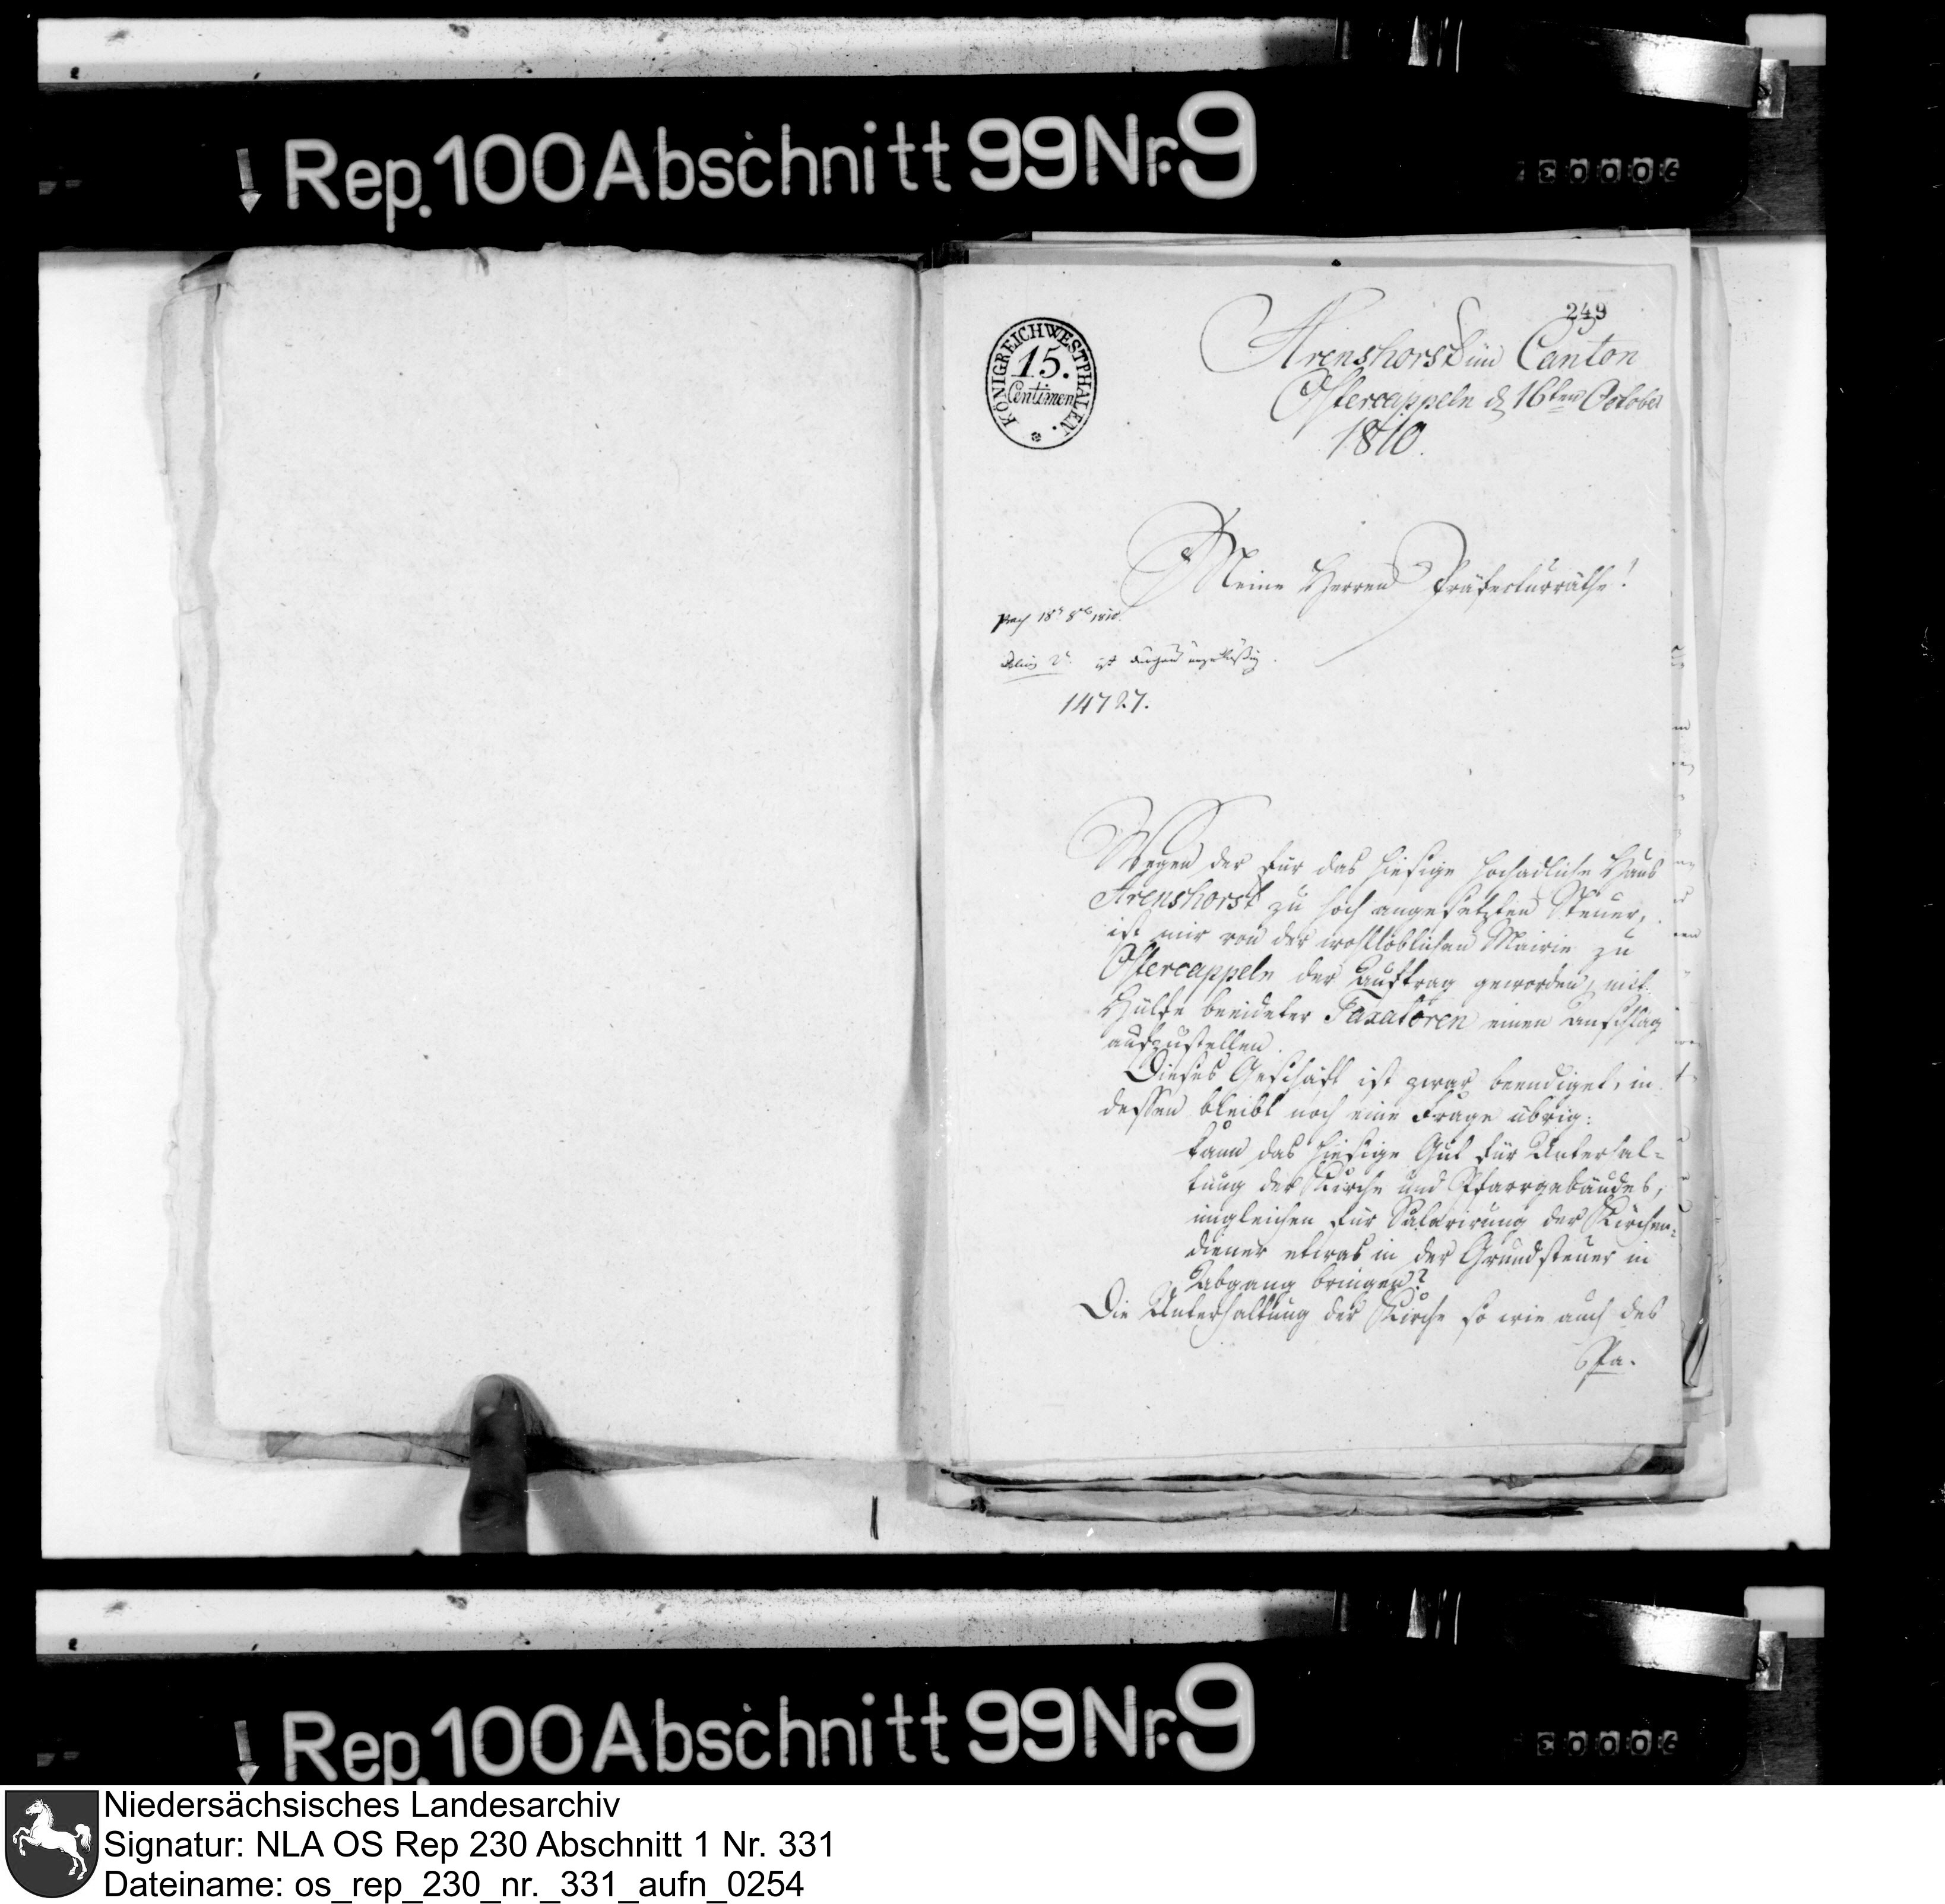 Rep. 100 Abschnitt 99 Nr. 9
249
KÖNIGREICH WESTPHALEN.
15.
Centimen
Arenshorst im Canton
Ostercappeln d. 16ten October
1810.
Meine Herren Präfecturräthe!
18t 8br 1810.
14727.
Wegen der für das hiesige hochadliche Haus
Arenshorst zu hoch angesetzten Steuer,
ist mir von der wohllöblichen Mairie zu
Ostercappeln der Auftrag geworden, mit
Hülfe beeideter Taxatoren einen Anschlag
aufzustellen.
Dieses Geschäft ist zwar beendiget, in
dessen bleibt noch eine Frage übrig:
kann das hiesige Gut für Unterhal-
tung der Kirche und Pfarrgebäudes,
imgleichen für Salarirung der Kirchen-
diener etwas in der Grundsteuer in
Abgang bringen?
Die Unterhaltung der Kirche so wie auch des
Pfa-
Rep. 100 Abschnitt 99 Nr. 9
Niedersächsisches Landesarchiv
Signatur: NLA OS Rep 230 Abschnitt 1 Nr. 331
Dateiname: os_rep_230_nr._331_aufn_0254